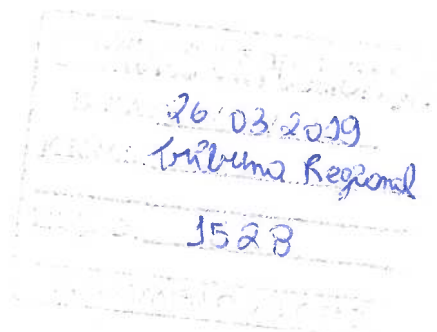 26 03 2019
tribuna Regional
1528